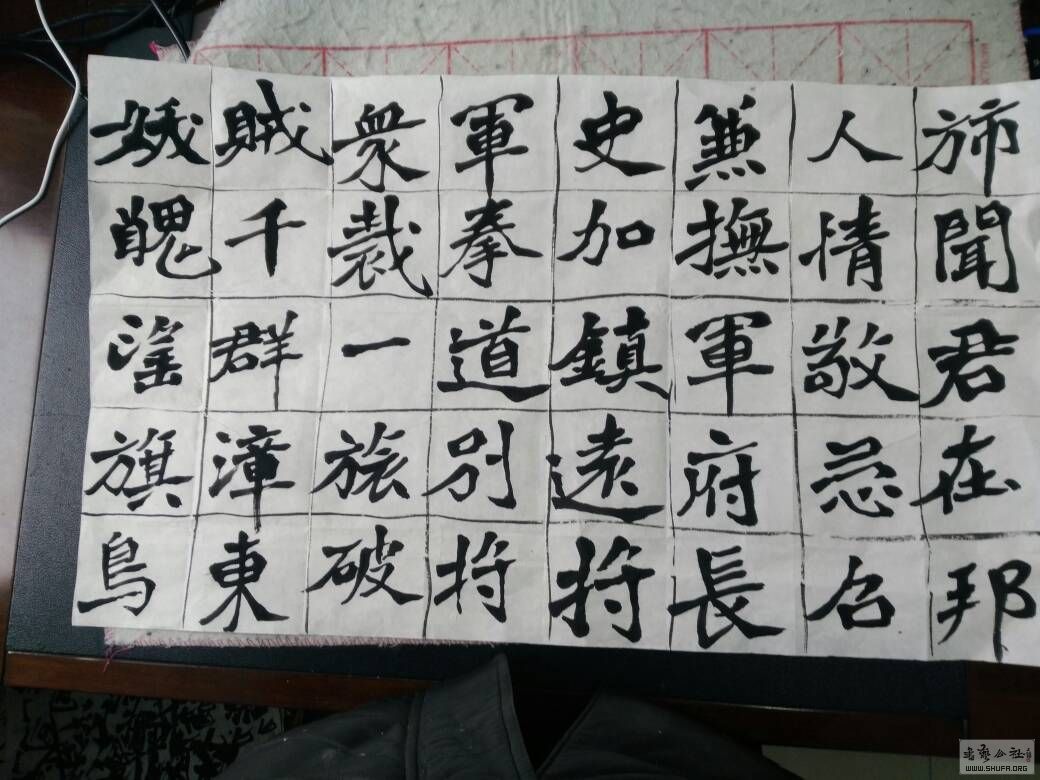 斾聞君在邦
人情敬忌召
兼撫軍府長
史加鎮遠將
軍拳道別將
衆裁一旅破
賊千群漳東
娥醜滛旗鳥
書藝公社
WWW.SHUFA.ORG